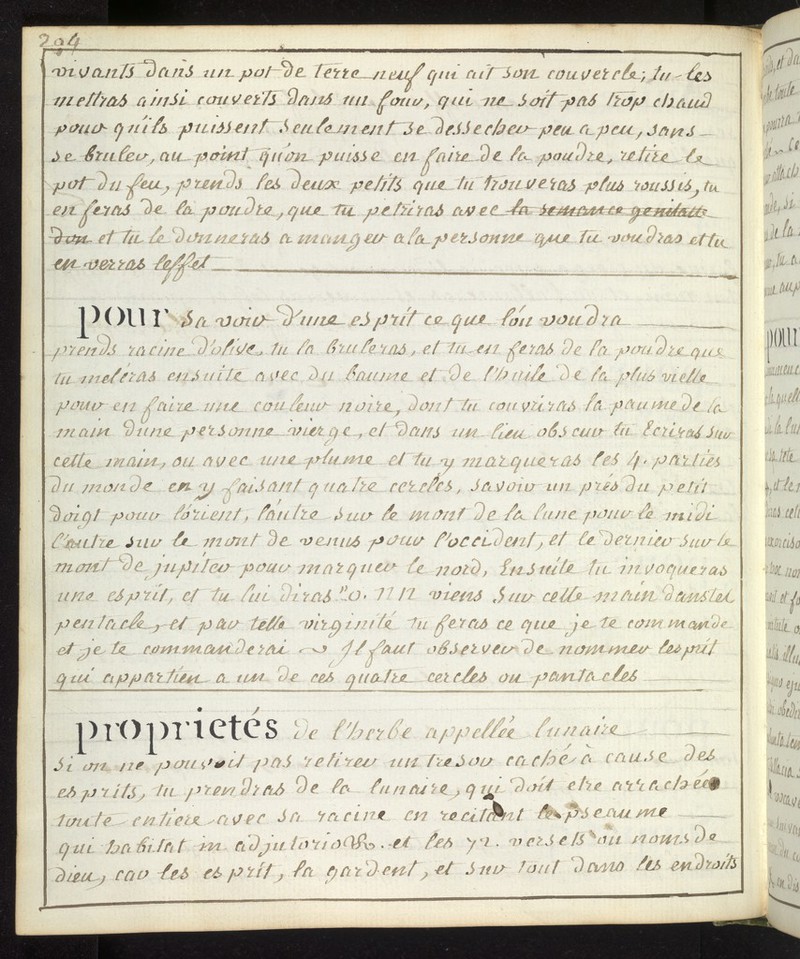 294
vivants dans un pot de terre neuf qui ait son couvercle; tu les
mettras ainsi couverts dans un four, qui ne soit pas trop chaud
pour qu'ils puissent seulement se dessecher peu a peu, sans
se bruler, au point qu'on puisse en faire de la poudre, retire le
pot du feu, prends les deux petits que tu trouveras plus roussis, tu
en feras de la poudre, que tu petriras avec la semance genitall
don et tu le donneras a manger a la personne que tu voudras et tu
en verras l'effet
pour savoir d'une esprit ce que l'on voudra
prends racine d'olive, tu la bruleras, et tu en feras de la poudre que
tu meléras ensuite avec du baume et de l'huile de la plus vielle
pour en faire une couleur noire, dont tu couvriras la paume de la
main d'une personne vierge, et dans un lieu obscur tu Ecriras sur
cette main, ou avec une plume et tu y marqueras les 4. parties
du monde en y faisant quatre cercles, savoir un prés du petit
doigt pour l'orient, l'autre sur le mont de la lune pour le midi
l'autre sur le mont de venus pour l'occident, et le dernier sur le
mont de jupiter pour marquer le nord, Ensuite tu invoqueras
une esprit, et tu lui diras "o. N N viens sur cette main dans tel
pentacle, et par telle virginité tu feras ce que je te commande
et je te commanderai ~ Il faut observer de nommer lesprit
qui appartien a un de ces quatre cercles ou pantacles
proprietés de l'herbe appellée lunaire
Si on ne pouvoit pas retirer un tresor caché à cause des
esprits, tu prendras de la lunaire, qui doit etre arrachée
toute entiere avec sa racine en recitant le pseaume
qui habitat in adjutorio &c. et les 72. versets ou noms de
dieu, car les esprit, la gardent, et sur tout dans les endroits